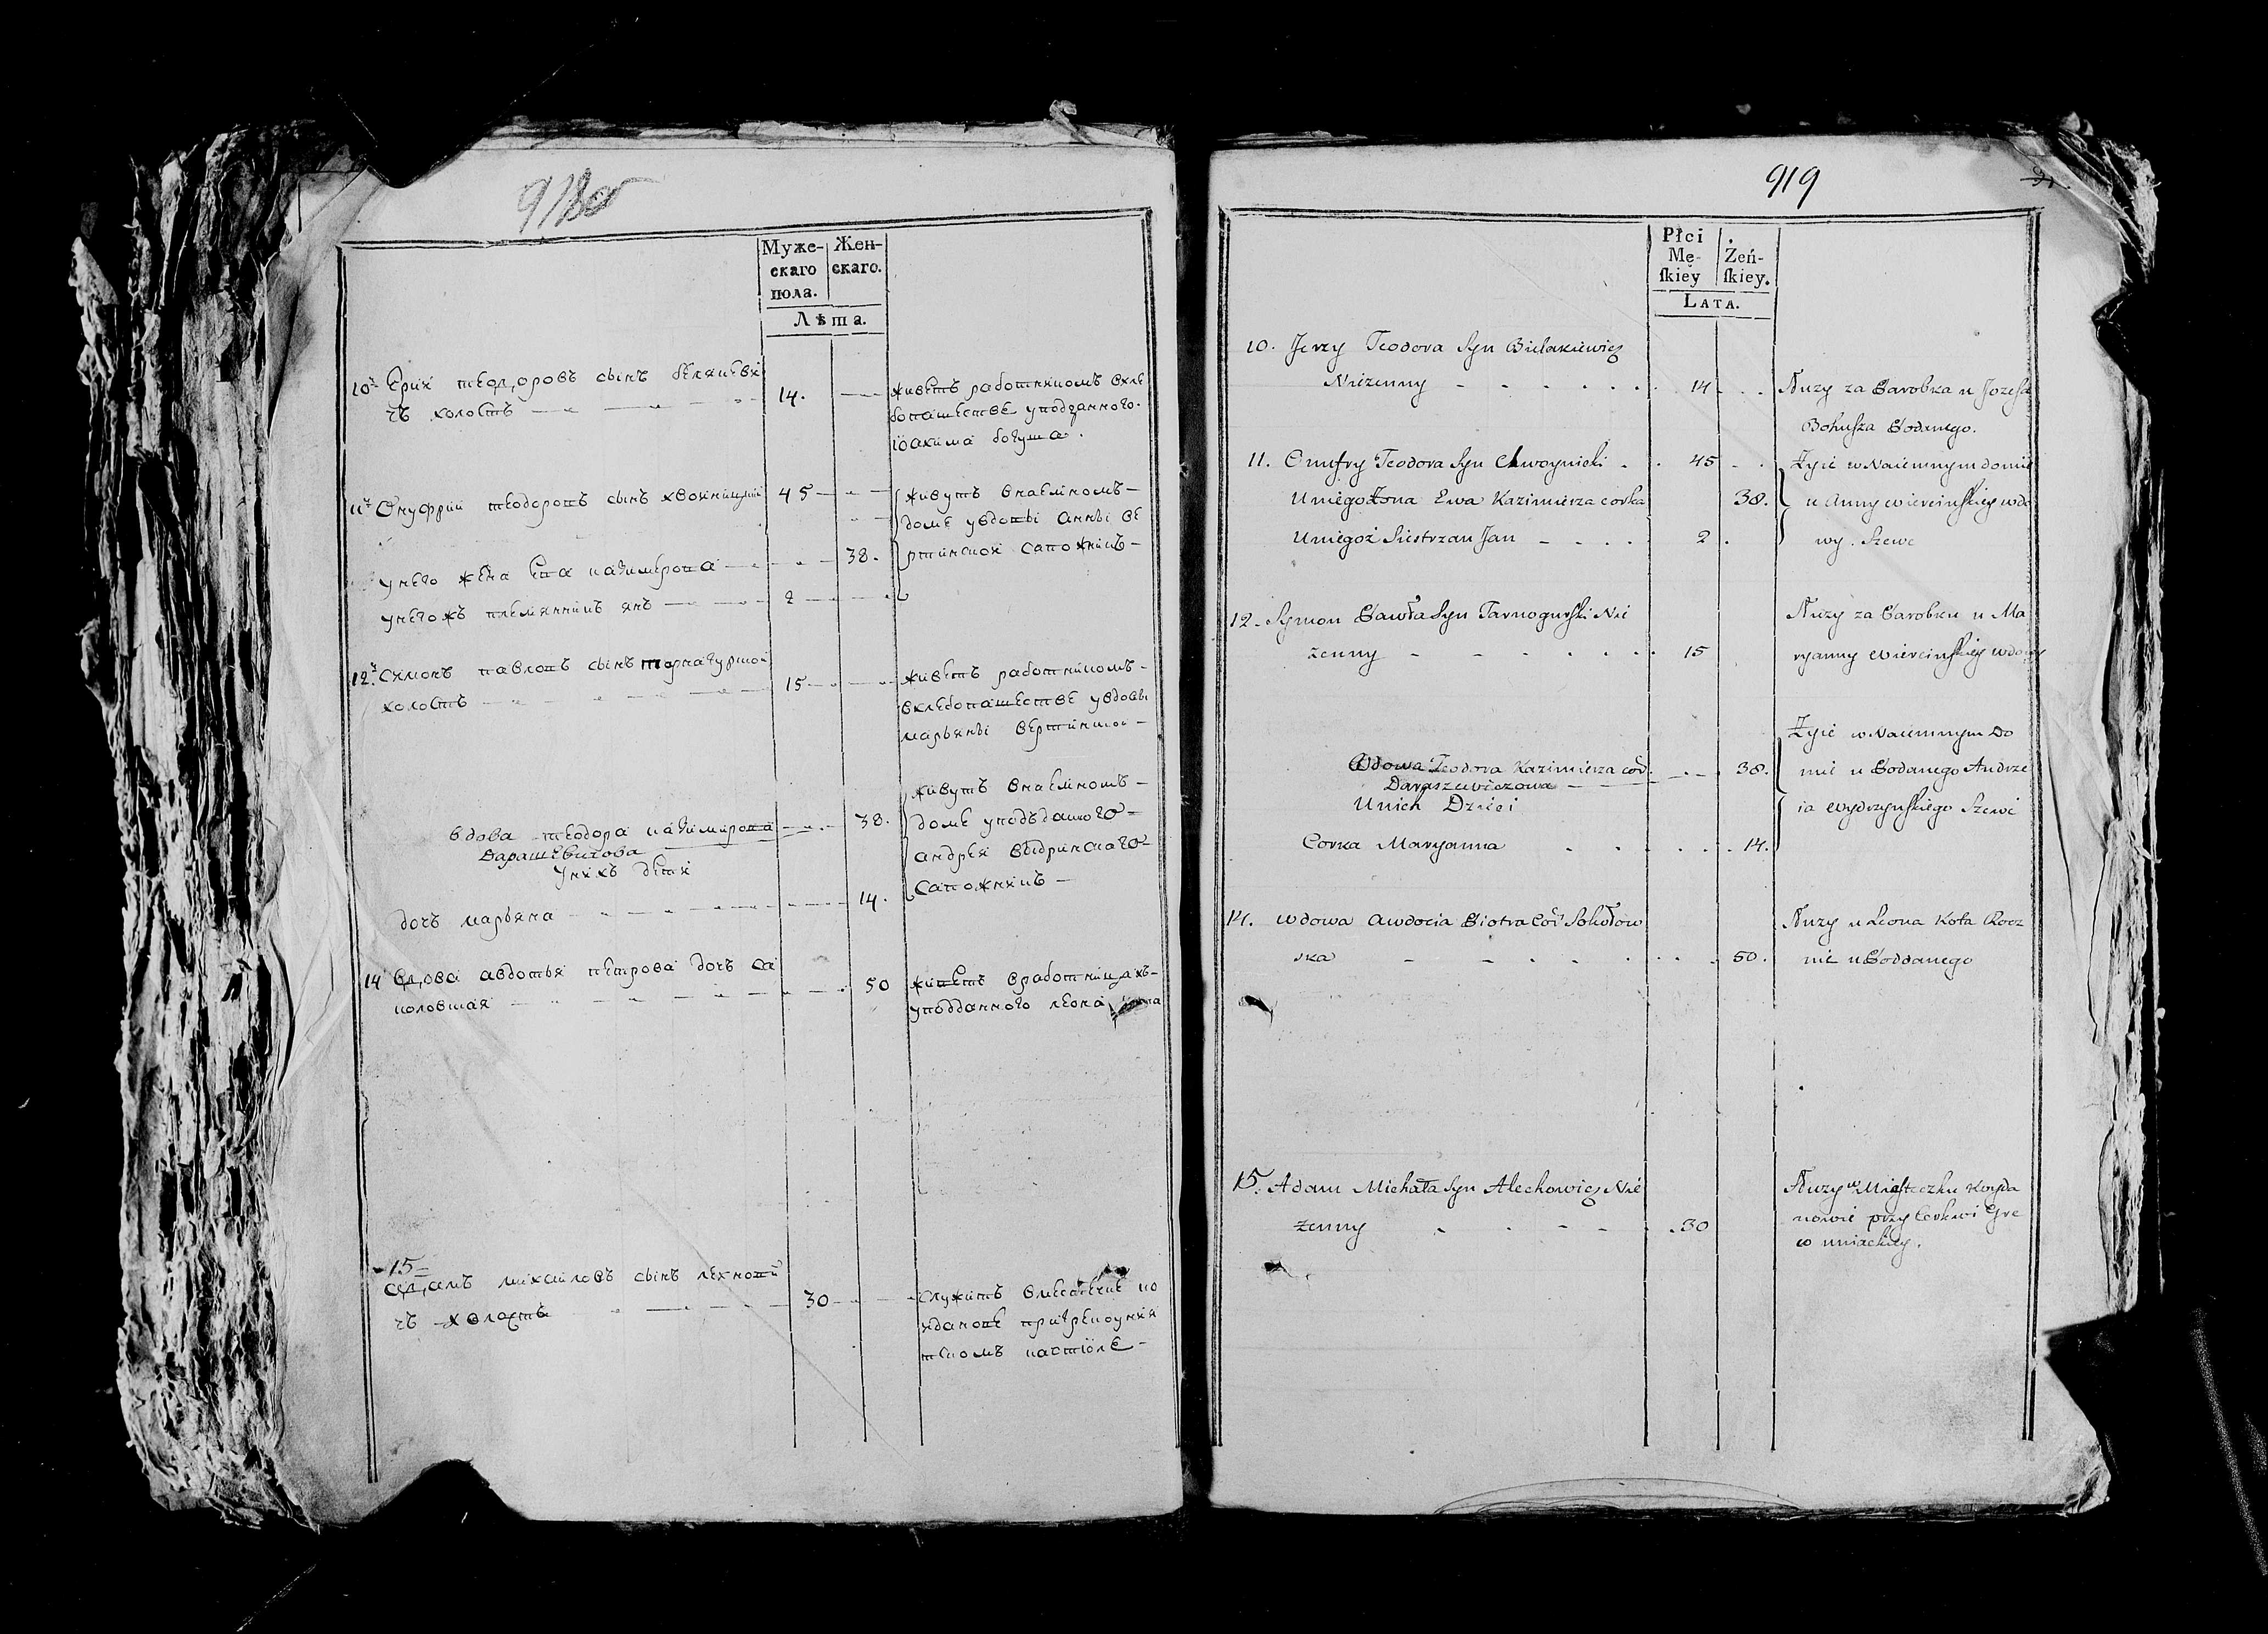 918об
Муже-
скаго
пола.
Жен-
скаго.
Лѣта.
10й Ерий теодоровъ сынъ белякеви
чъ холостъ
14.
живетъ работникомъ вхле
бопашестве уподданного
іоакима богуша.
11й Онуфрий теодоровъ сынъ хвойницкий
45
живутъ внаемномъ
доме увдовы анны ве
ртинской сапожникъ
унего жена ева казимерова
38.
унегожъ племянникъ янъ
2
12й Симонъ павловъ сынъ тарнагурской
холостъ
15
живетъ работникомъ
вхлебопашестве увдовы
марьяны вертинской
вдова теодора казимирова
Дарашевичова
38.
унихъ дети
дочъ марьяна
14.
живутъ внаемномъ
доме уподъданого
андрея выдринского
сапожникъ
14 вдова авдотья петрова дочъ са
коловская
50
живетъ вработницахъ
уподданного леона кота
15
адамъ михаиловъ сынъ лехнови
чъ холостъ
30
служитъ вместечке ко
йданове пригрекоуния
тскомъ костіоле
919
Płci
Mę-
ſkiey
Żeń-
ſkiey.
LATA.
10. Jerzy Teodora Syn Bielakiewicz
Nieżenny
14
Służy za Parobka u Jozefa
Bohusza Podanego.
11. Onufry Teodora Syn Chwoynicki
45
Żyie w Naiemnym domie
U niego Żona Ewa Kazimierza corka
38.
u Anny Wiercinskiey wdo
U niegoż Siestrzan Jan
2
wy. Szewc
12. Symon Pawła Syn Tarnogurski Nie
żenny
15
Służy za Parobka u Ma
ryanny Wiercinskiey wdowy
Wdowa Teodora Kazimierza cór.
Daraszewiczowa
38.
U nich Dzieci
Corka Maryanna
14.
Żyie w Naiemnym Do
mie u Podanego Andrze
ia Wydrzynskiego Szewc
14. wdowa Awdocia Piotra Cór Sokołow
ska
50.
Służy u Leona Kota Rocz
nie u Poddanego
15. Adam Michała Syn Alechowicz Nie
żenny
30
Służy w Miasteczku Koyda
nowie przy Cerkwi Gre
co uniackiey.